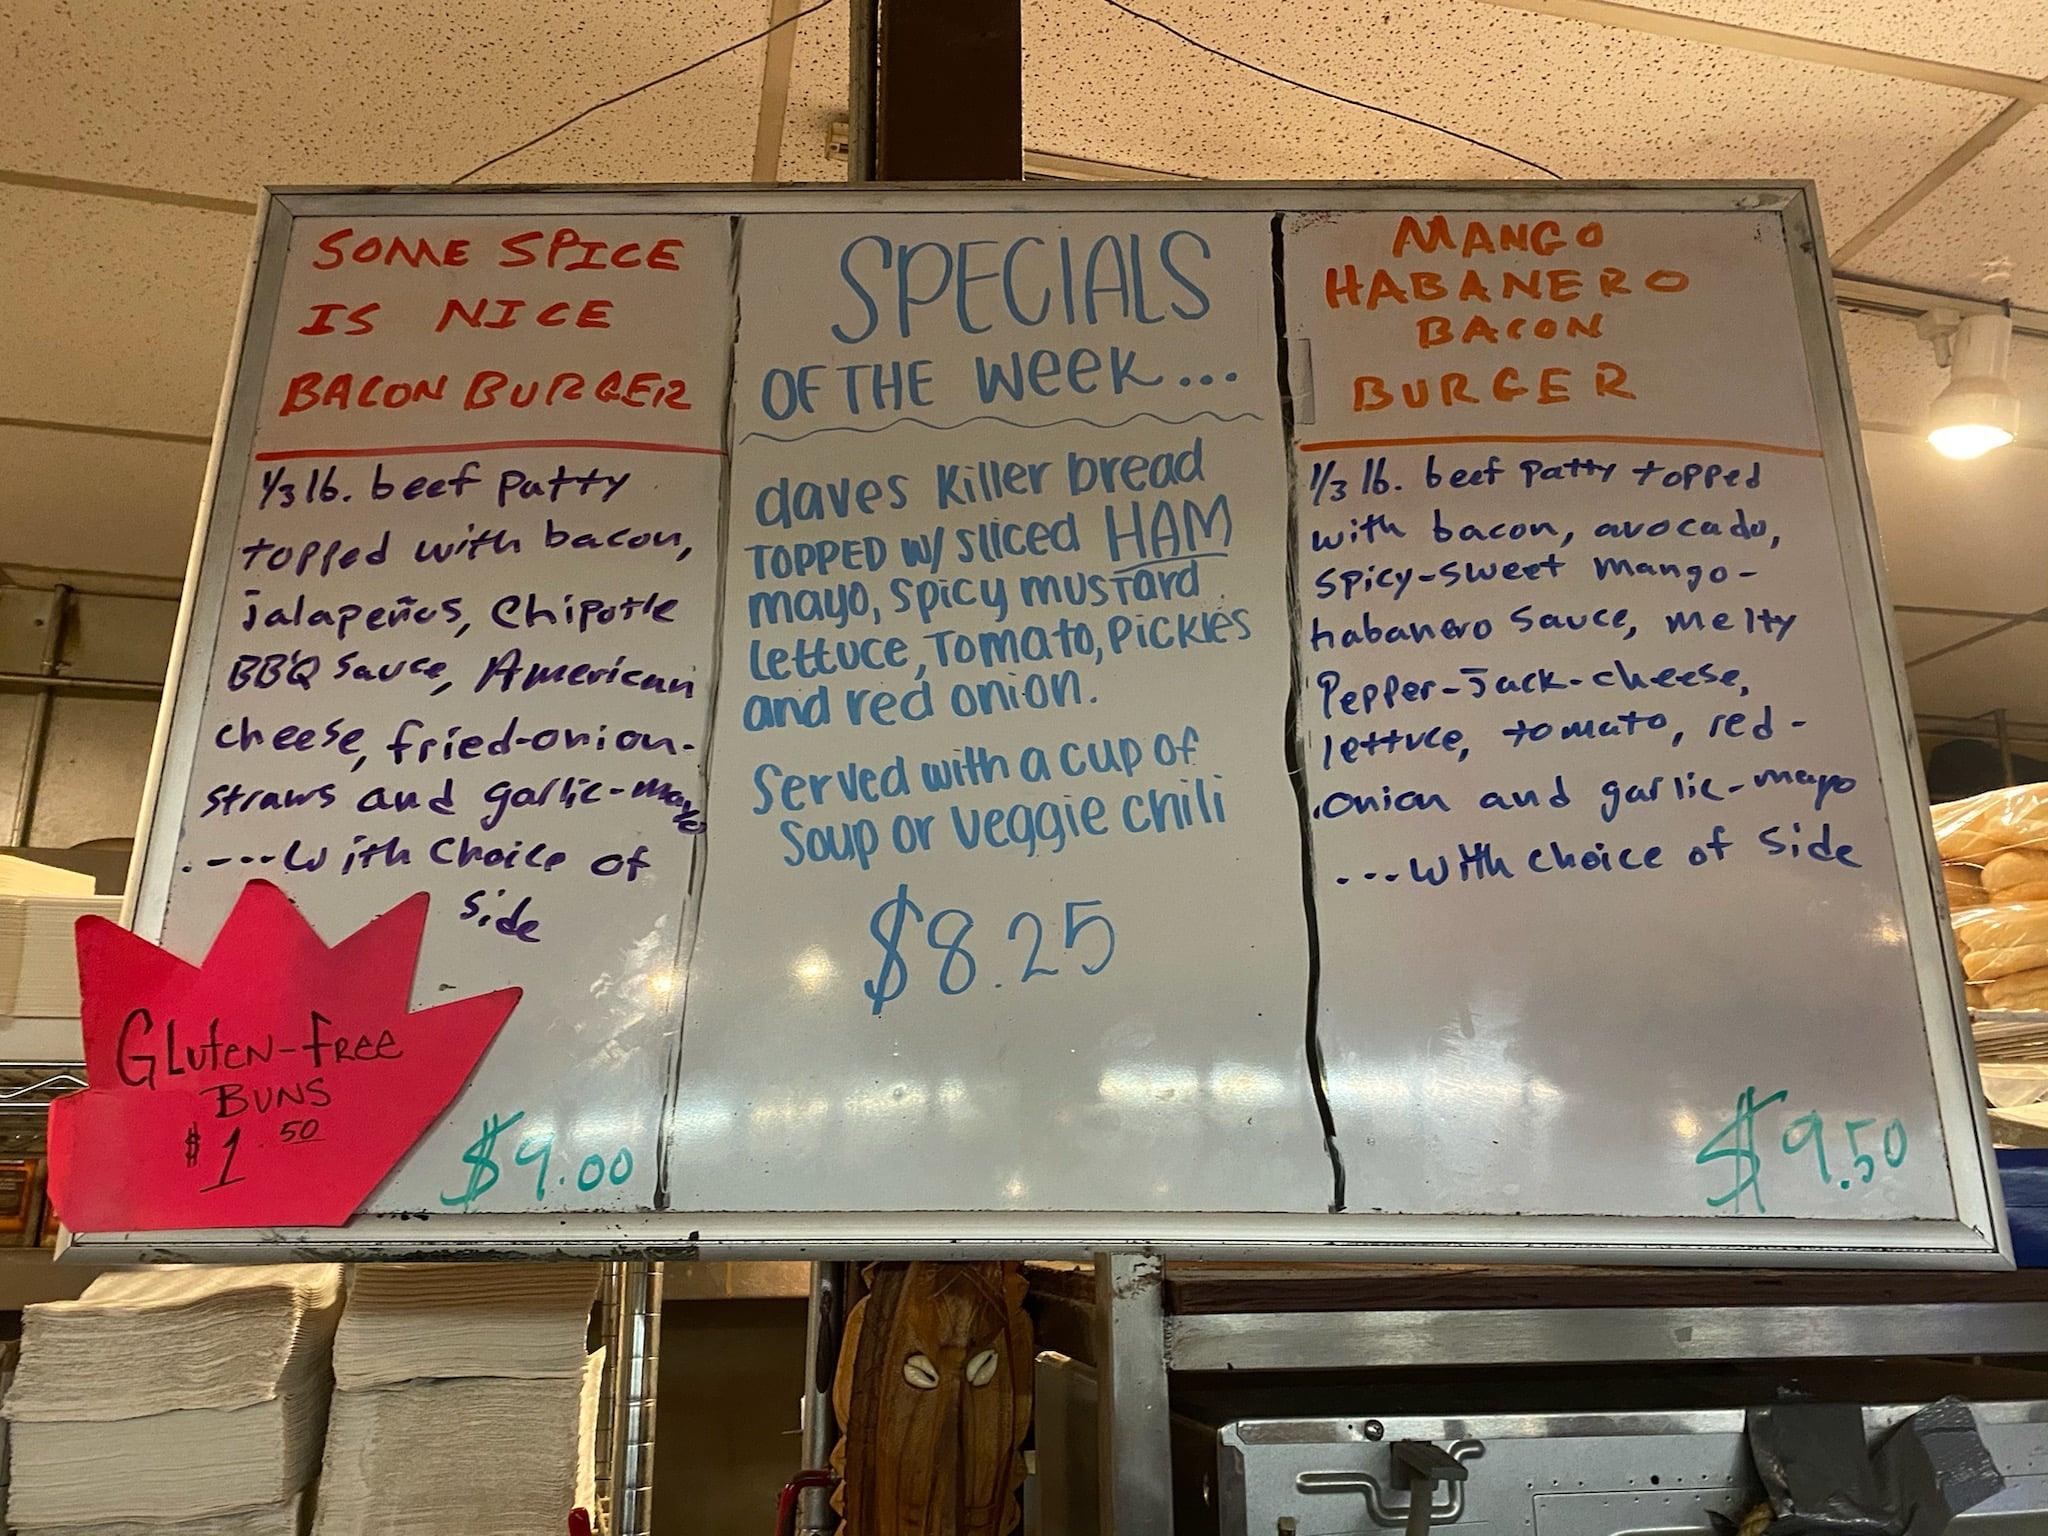 SOME SPICE
IS NICE
BACON BURGER
1/3 lb. beef patty
topped with bacon,
jalapeños, Chipotle
BBQ sauce, American
cheese, fried-onion-
straws and garlic-mayo
----with choice of
side
$9.00
GLUTEN-FREE
BUNS
$1.50
SPECIALS
OF THE WEEK...
daves killer bread
TOPPED W/ sliced HAM
mayo, spicy mustard
lettuce, Tomato, Pickles
and red onion.
Served with a cup of
Soup or Veggie chili
$8.25
MANGO
HABANERO
BACON
BURGER
1/3 lb. beef patty topped
with bacon, avocado,
spicy-sweet mango-
habanero sauce, melty
Pepper-Jack-cheese,
lettuce, tomato, red-
onion and garlic-mayo
...with choice of side
$9.50